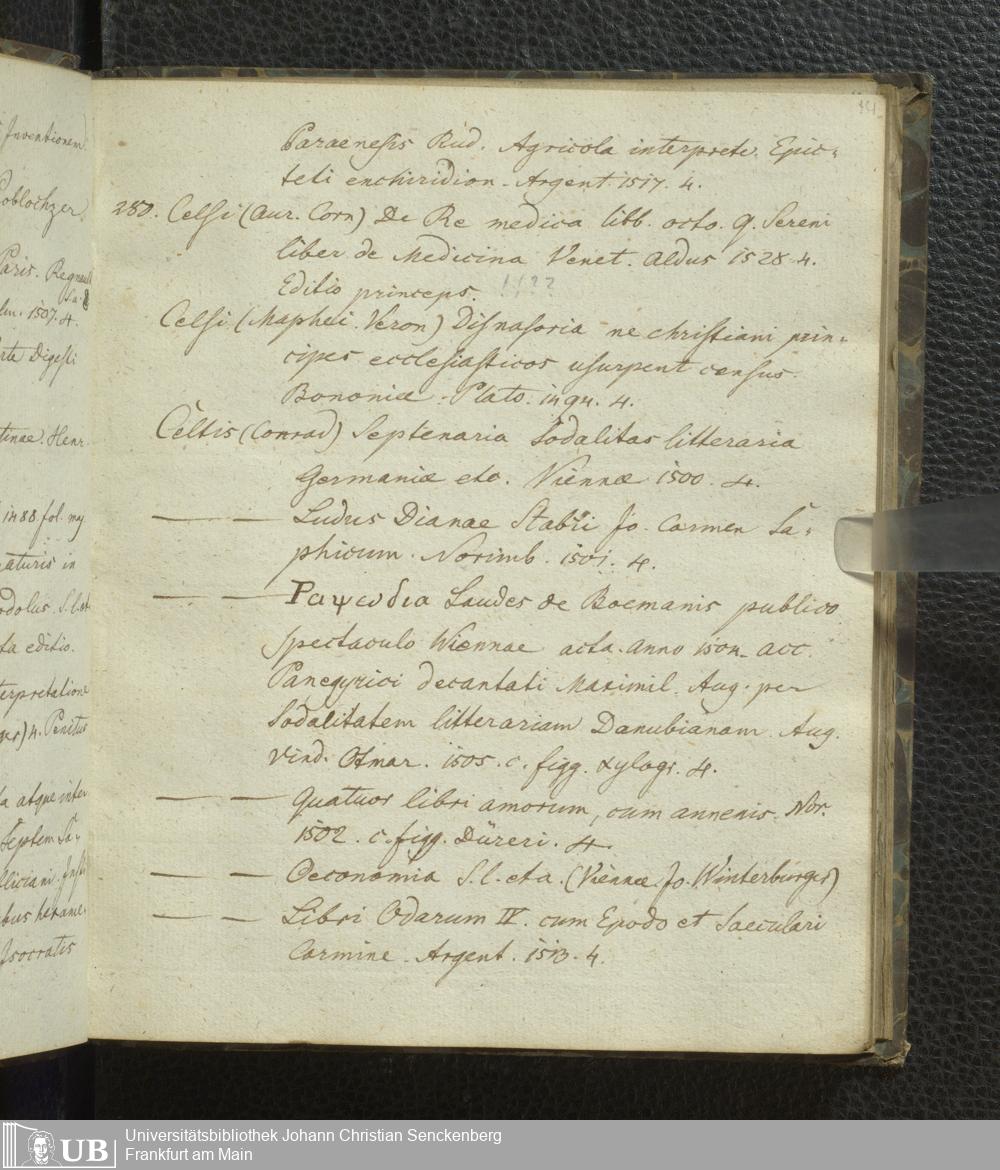 Inventionem
Paris. Regnault
1507. 4.
arte Digesti
Henr.
1488. fol. maj
aturis in
odolus. S. l. et
ta editio.
terpretatione
4. Penitus
a atque inter
Septem Sa-
bus hexame-
Isocratis
141
Paraenesis Rud. Agricola interprete. Epic-
teti enchiridion. Argent. 1517. 4.
280. Celsi (Aur. Corn) De Re medica libb. octo. Q. Sereni
liber de Medicina Venet. Aldus 1528. 4.
Editio princeps. !!??
Celsi (Maphei. Veron) Disuasoria ne christiani prin-
cipes ecclesiasticos usurpent census.
Bononiæ. Plato. 1494. 4.
Celtis (Conrad) Septenaria Sodalitas litteraria
Germaniæ etc. Viennæ 1500. 4.
— — Ludus Dianae Stabii Jo. Carmen Sa-
phicum. Norimb. 1501. 4.
— — Ραψωδια Laudes de Boemanis publico
Spectaculo Wiennae acta. anno 1504. acc.
Panegyrici decantati Maximil. Aug. per
Sodalitatem litterariam Danubianam. Aug.
Vind. Otmar. 1505. c. figg. xylogr. 4.
— — Quatuor libri amorum, cum annexis. Nor.
1502. c. figg. Düreri. 4.
— — Oeconomia S. l. et a. (Viennæ. Jo. Winterburger)
— — Libri Odarum IV. cum Epodo et Saeculari
Carmine. Argent. 1513. 4.
UB Universitätsbibliothek Johann Christian Senckenberg
Frankfurt am Main